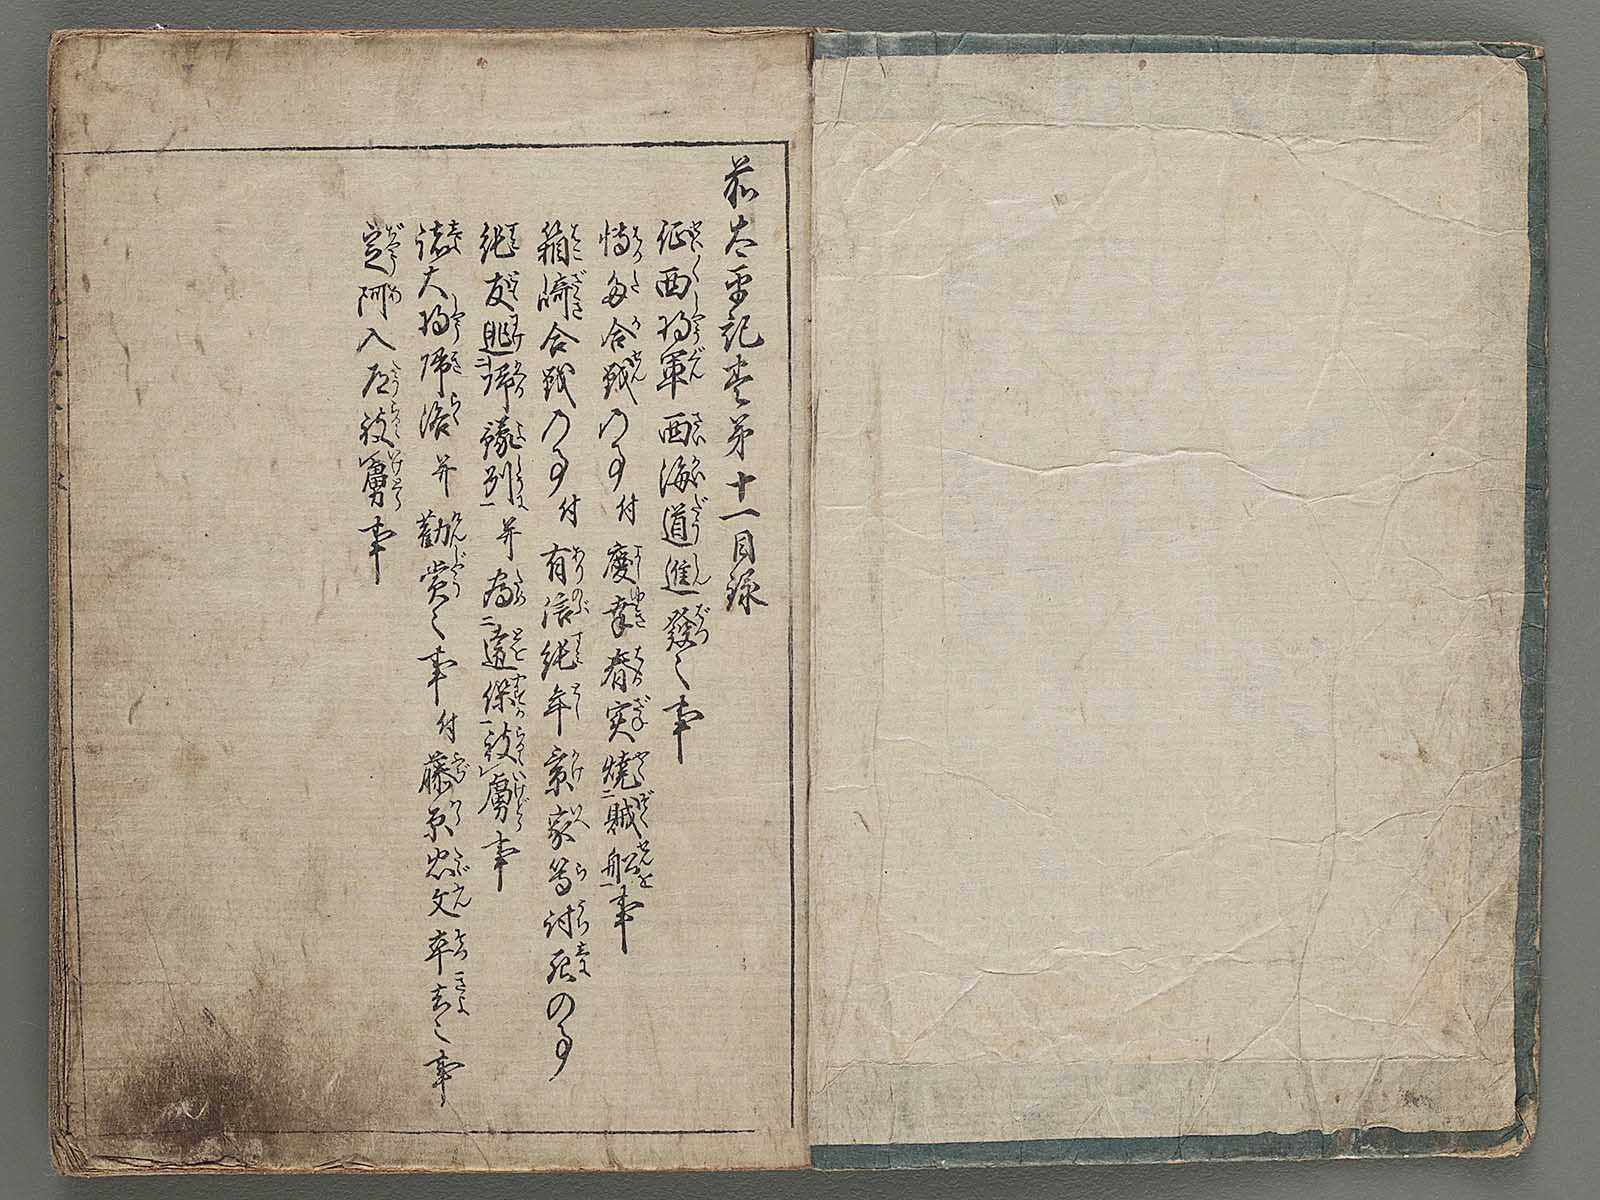 前太平記巻第十一目録
征西将軍西海道進発之事
博多合戦の事付慶幸春実焼二賊船一事
箱崎合戦の事付有信純年景家等討死の事
純友逃二帰豫州一并為二遠保一被レ虜事
諸大将帰洛并勧賞之事付藤原忠文卒去之事
定阿入道被レ虜事